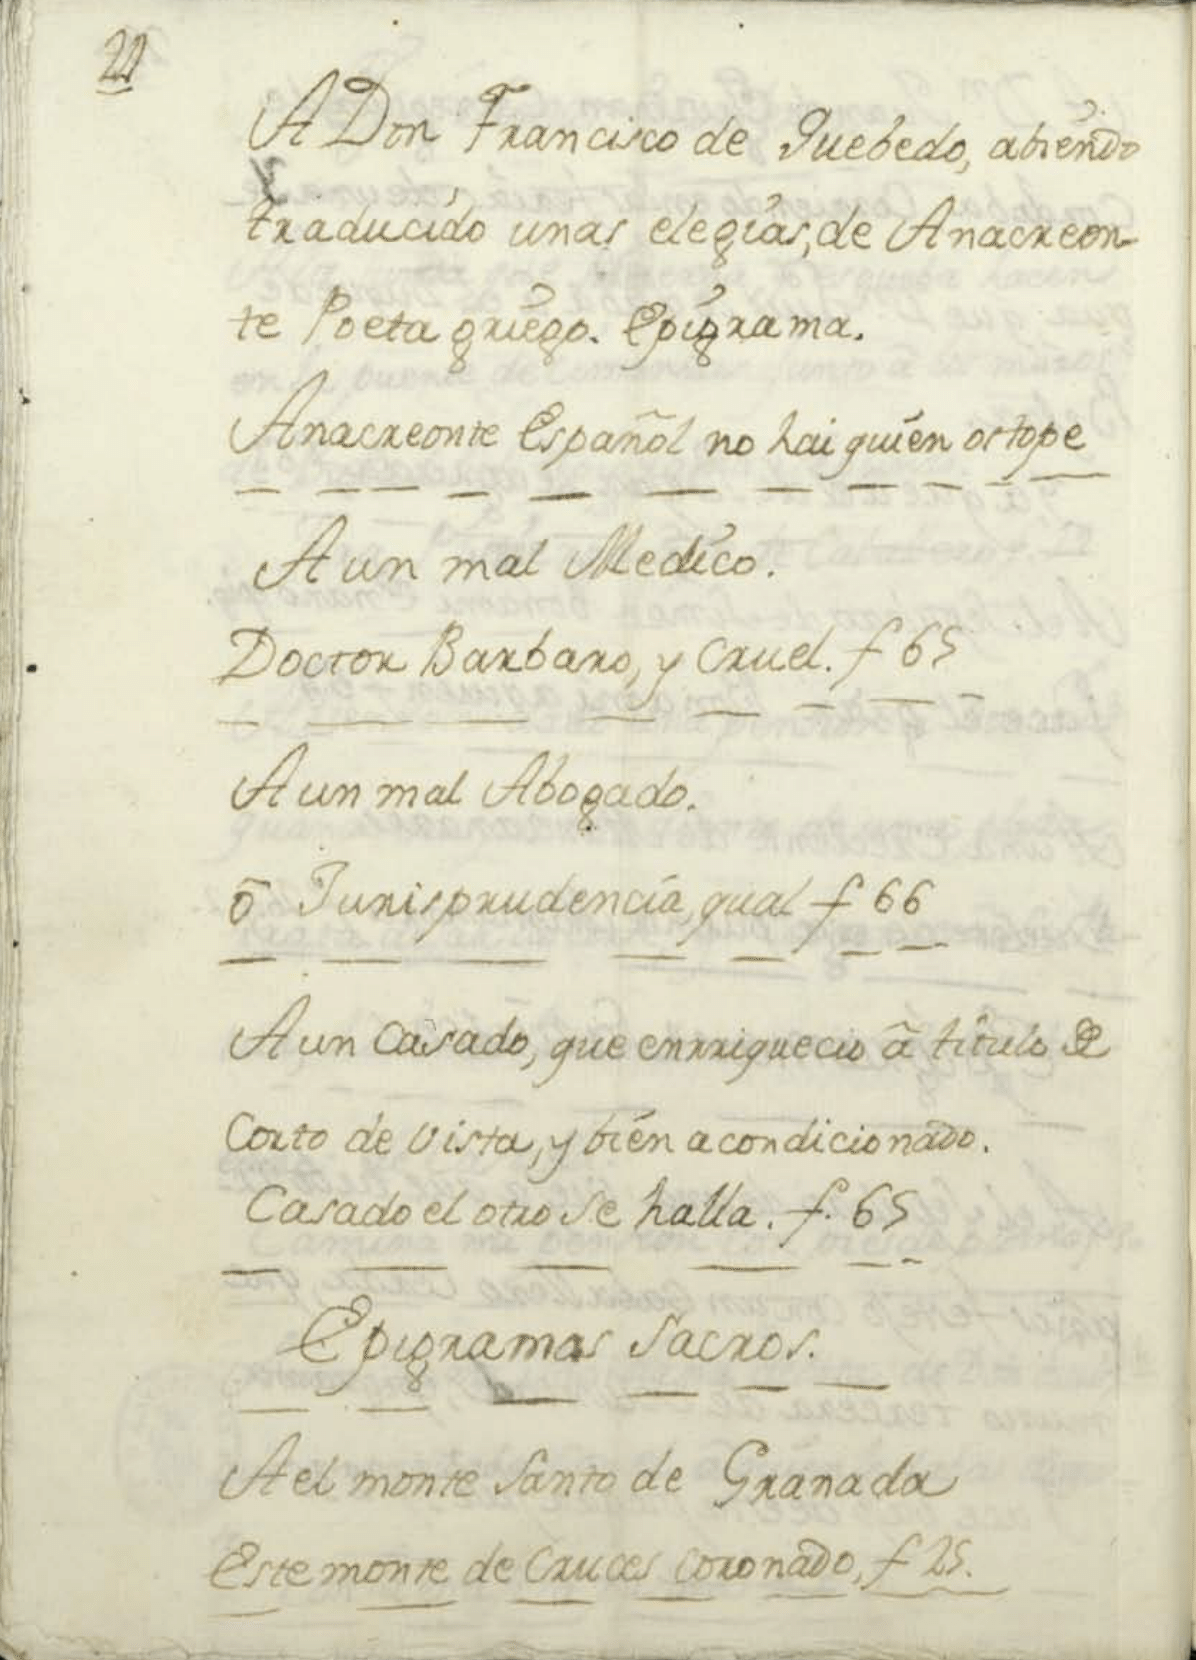 22
A Don Francisco de Quebedo, abiendo
traducido unas elegias, de Anacreon-
te Poeta griego. Epigrama.
Anacreonte Español no hai quien os tope
A un mal Medico.
Doctor Barbaro, y cruel. f 65
A un mal Abogado.
õ Jurisprudencia, qual f 66
A un Casado, que enrriquecio ã titulo de
Corto de vista, y bien acondicionado.
Casado el otro se halla. f. 65
Epigramas Sacros.
A el monte Santo de Granada
Este monte de Cruces coronado, f 25.